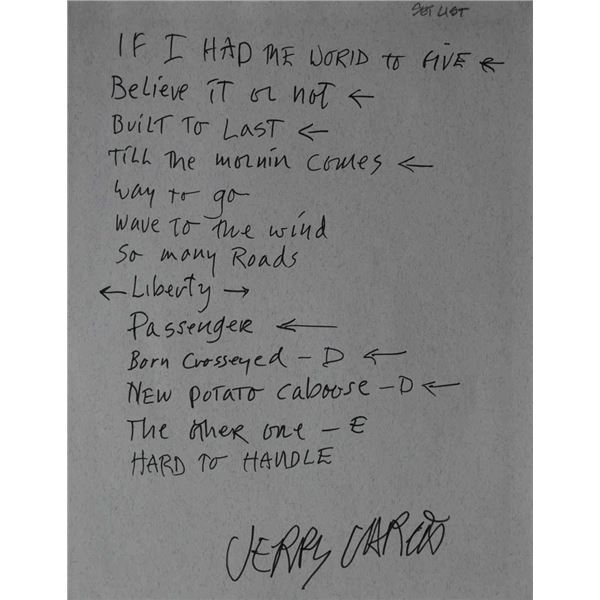 SET LIST
IF I HAD THE WORLD to GIVE ←
Believe iT or not ←
BuilT To LasT ←
Till The mornin comes ←
way to go
wave To the wind
So many Roads
← LiberTy →
Passenger ←
Born Crosseyed – D ←
NEW POTATO caboose – D ←
The other one – E
HARD to HANDLE
JERRY GARCIA